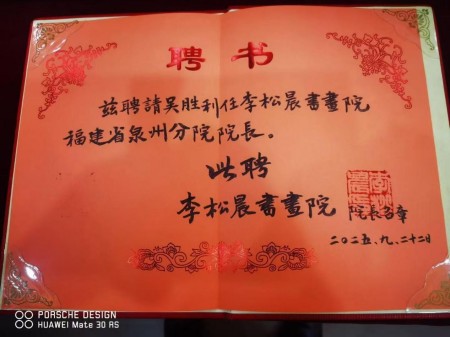 聘书
兹聘請吴胜利任李松晨書畫院
福建省泉州分院院長。
此聘
李松晨書畫院 院長名章
二〇二五、九、二十二日
PORSCHE DESIGN
HUAWEI Mate 30 RS